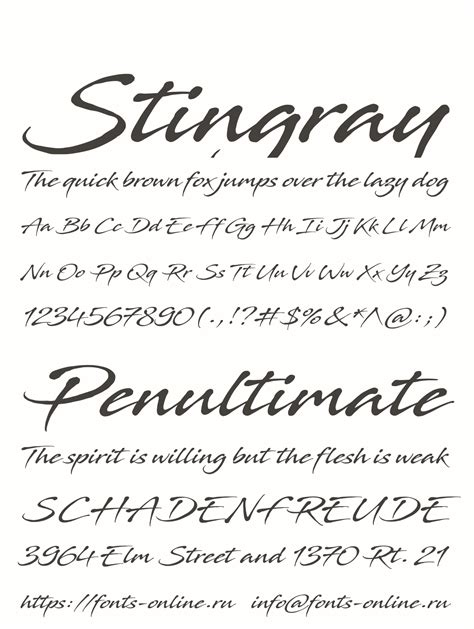 Stingray
The quick brown fox jumps over the lazy dog
Aa Bb Cc Dd Ee Ff Gg Hh Ii Jj Kk Ll Mm
Nn Oo Pp Qq Rr Ss Tt Uu Vv Ww Xx Yy Zz
1234567890(.,!?#$%&*^@:;)
Penultimate
The spirit is willing but the flesh is weak
SCHADENFREUDE
3964 Elm Street and 1370 Rt. 21
https://fonts-online.ru info@fonts-online.ru